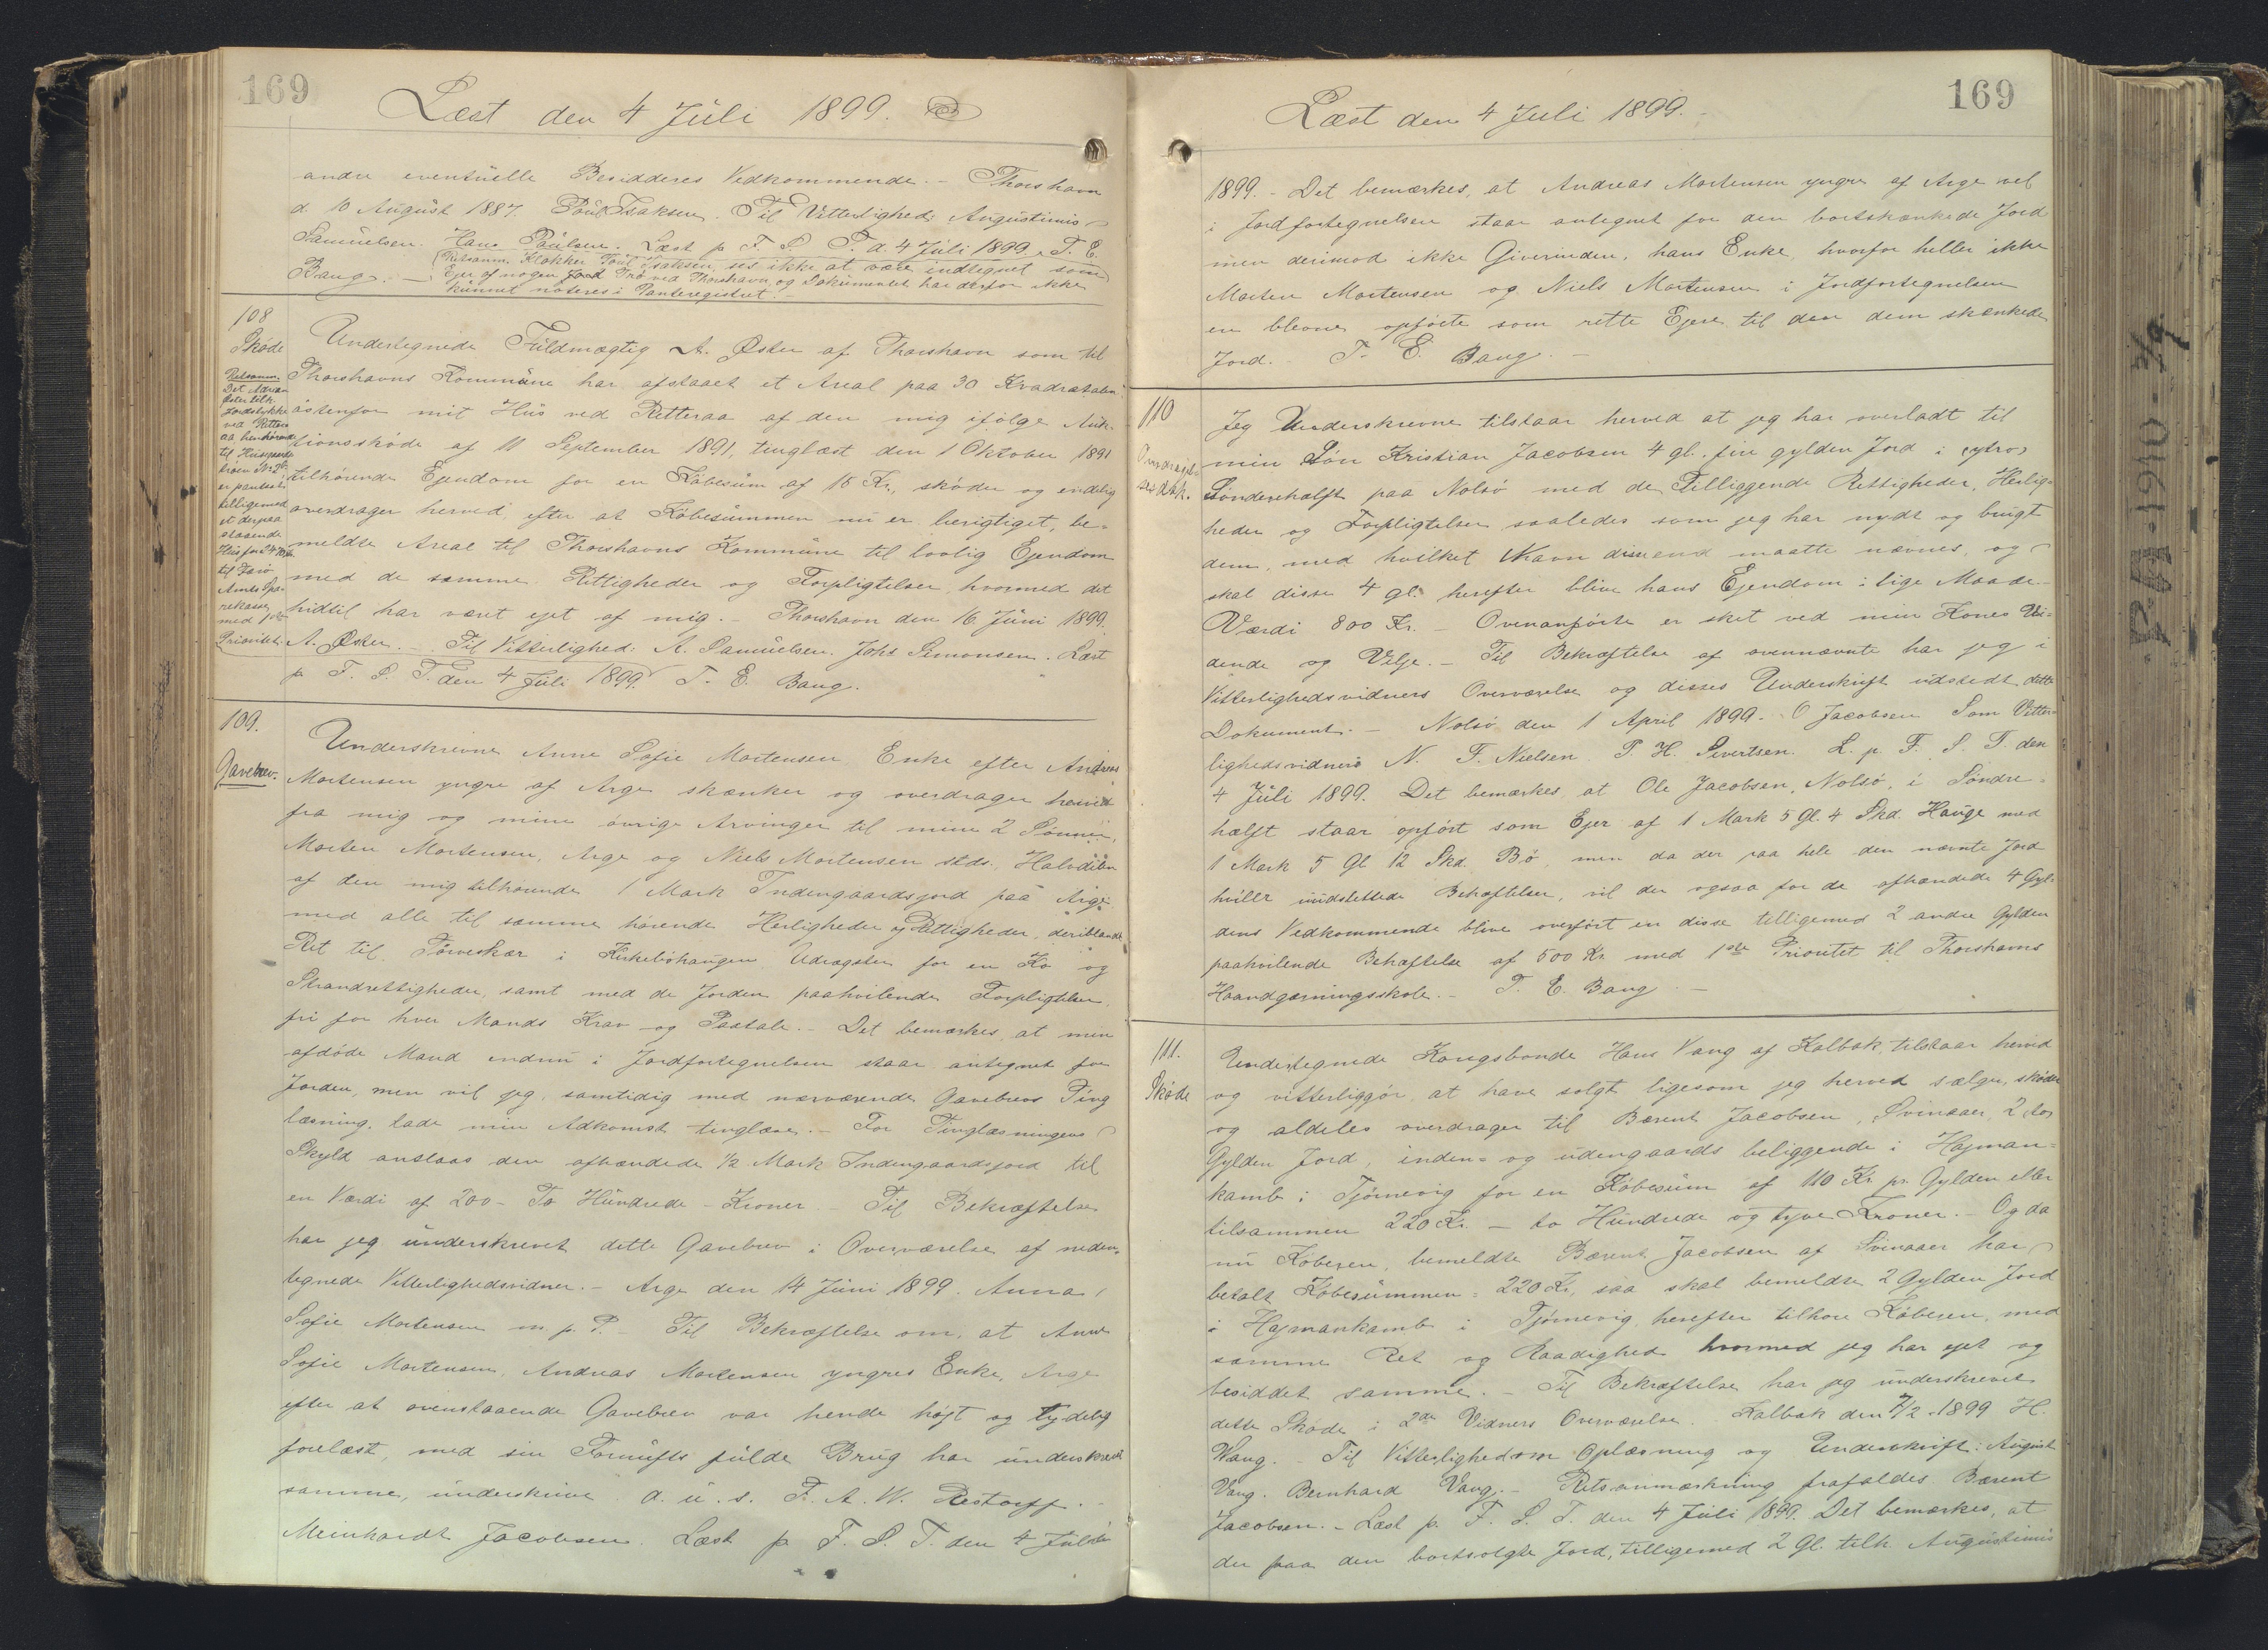 169
Læst den 4 Juli 1899.
andre eventuelle Besidderes Vedkommende. – Thorshavn
d. 10 August 1887. Poul Isaksen. Til Vitterlighed: Augustinus
Samuelsen. Hans Paulsen. Læst p. F. S. T. d. 4 Juli 1899. T. E.
Bang. –
Retsanm. Klokker Poul Isaksen, ses ikke at være indtegnet som
Ejer af nogen Jord Trø ved Thorshavn, og Dokumentet har derfor ikke
kunnet noteres i Panteregistret. –
108
Skøde
Retsanm.
Det Adrian
Øster tilh.
Jordstykke
ved Ritter
aa henhørende
til Husparti
er pantsat
tilligemed
et derpaa
staaende
Hus for
til Færø
Amts Spa-
rekasse
med 1ste
Prioritet.
Undertegnede Fuldmægtig A. Øster af Thorshavn som til
Thorshavns Kommune har afstaaet et Areal paa 30 Kvadratalen
østenfor mit Hus ved Ritteraa af den mig ifølge Auk-
tionsskøde af 11 September 1891, tinglæst den 1 Oktober 1891
tilhørende Ejendom for en Købesum af 15 Kr., skøder og endelig
overdrager herved, efter at Købesummen nu er berigtiget, be-
meldte Areal til Thorshavns Kommune til lovlig Ejendom
med de samme Rettigheder og Forpligtelser, hvormed det
hidtil har været ejet af mig. – Thorshavn den 16. Juni 1899.
A. Øster. – Til Vitterlighed: A. Samuelsen. Johs Simonsen. Læst
p. F. S. T. den 4 Juli 1899. T. E. Bang.
109.
Gavebrev.
Underskrevne Anne Sofie Mortensen Enke efter Andreas
Mortensen yngre af Arge skænker og overdrager herved
fra mig og mine øvrige Arvinger til mine 2 Sønner,
Morten Mortensen, Arge og Niels Mortensen stds. Halvdelen
af den mig tilhørende 1 Mark Indengaardsjord paa Arge
med alle til samme hørende Herligheder og Rettigheder, deriblandt
Ret til Tørveskær i Kirkebøhaugen Udrægsten for en Ko og
Strandrettigheder, samt med de Jorden paahvilende Forpligtelser,
fri for hver Mands Krav og Paatale. – Det bemærkes, at min
afdøde Mand endnu i Jordfortegnelsen staar antegnet for
Jorden, men vil jeg, samtidig med nærværende Gavebrevs Ting
læsning, lade min Adkomst tinglæse. – For Tinglæsningens
Skyld anslaas den afhændede ½ Mark Indengaardsjord til
en Værdi af 200 – To Hundrede – Kroner. – Til Bekræftelse
har jeg underskrevet dette Gavebrev i Overværelse af neden-
tegnede Vitterlighedsvidner. – Arge den 14 Juni 1899. Anna
Sofie Mortensen m. p. P. – Til Bekræftelse om, at Anne
Sofie Mortensen, Andreas Mortensen yngres Enke, Arge
efter at ovenstaaende Gavebrev var hende højt og tydelig
forelæst, med sin Fornufts fulde Brug har underskrevet
samme, underskrive d. u. s. F. A. W. Restorff. –
Meinhardt Jacobsen. Læst p. F. S. T. den 4 Juli
169
Læst den 4 Juli 1899. –
1899. – Det bemærkes, at Andreas Mortensen yngre af Arge vel
i Jordfortegnelsen staar antegnet for den bortskænkede Jord
men derimod ikke Giverinden, hans Enke, hvorfor heller ikke
Morten Mortensen og Niels Mortensen i Jordfortegnelsen
er blevne opførte som rette Ejere til den dem skænkede
Jord. T. E. Bang. –
110
Overdragel-
ses dok.
Jeg Underskrevne tilstaar herved at jeg har overladt til
min Søn Kristian Jacobsen 4 gl. fire gylden Jord i ytro
Sønderehalft paa Nolsø med de Tilliggende Rettigheder, Herlig-
heder og Forpligtelser saaledes som jeg har nydt og brugt
dem, med hvilket Navn disse end maatte nævnes, og
skal disse 4 gl. herefter blive hans Ejendom i lige Maade. –
Værdi 800 Kr. – Ovenanførte er sket ved min Kones Vi-
dende og Vilje. – Til Bekræftelse af ovennævnte har jeg i
Vitterlighedsvidners Overværelse og disses Underskrift udstedt dette
Dokument. – Nolsø den 1 April 1899. O Jacobsen Som Vitter-
lighedsvidner: N. F. Nielsen P. H. Sivertsen. L. p. F. S. T. den
4 Juli 1899. Det bemærkes, at Ole Jacobsen, Nolsø, i Søndre-
hælft staar opført som Ejer af 1 Mark 5 Gl. 4 Skd. Hauge med
1 Mark 5 Gl 12 Skd. Bø, men da der paa hele den nævnte Jord
hviler udslettede Behæftelser, vil der ogsaa for de afhændede 4 Gyl-
dens Vedkommende blive overført en disse tilligemed 2 andre Gylden
paahvilende Behæftelse af 500 Kr. med 1ste Prioritet til Thorshavns
Haandgærningsskole. – T. E. Bang. –
111.
Skøde
Undertegnede Kongsbonde Hans Vang af Kalbak, tilstaar herved
og vitterliggør, at have solgt ligesom jeg herved sælger, skøder
og aldeles overdrager til Bærent Jacobsen, Svinaaer, 2 to
Gylden Jord, inden- og udengaards beliggende i Hajman-
kamb i Tjørnevig for en Købesum af 110 Kr. pr. Gylden eller
tilsammen 220 Kr. – to Hundrede og tyve Kroner. – Og da
nu Køberen, bemeldte Bærent Jacobsen af Svinaaer har
betalt Købesummen: 220 Kr, saa skal bemeldte 2 Gylden Jord
i Hajmankamb i Tjørnevig herefter tilhøre Køberen, med
samme Ret og Raadighed hvormed jeg har ejet og
besiddet samme. – Til Bekræftelse har jeg underskrevet
dette Skøde i 2de Vidners Overværelse. Kalbak den 7/2 1899 H.
Wang. – Til Vitterlighed om Oplæsning og Underskrift: August
Vang. Bernhard Vang. – Retsanmærkning frafaldes Bærent
Jacobsen. – Læst p. F. S. T. den 4 Juli 1899. Det bemærkes, at
der paa den bortsolgte Jord, tilligemed 2 Gl. tilh. Augustinus